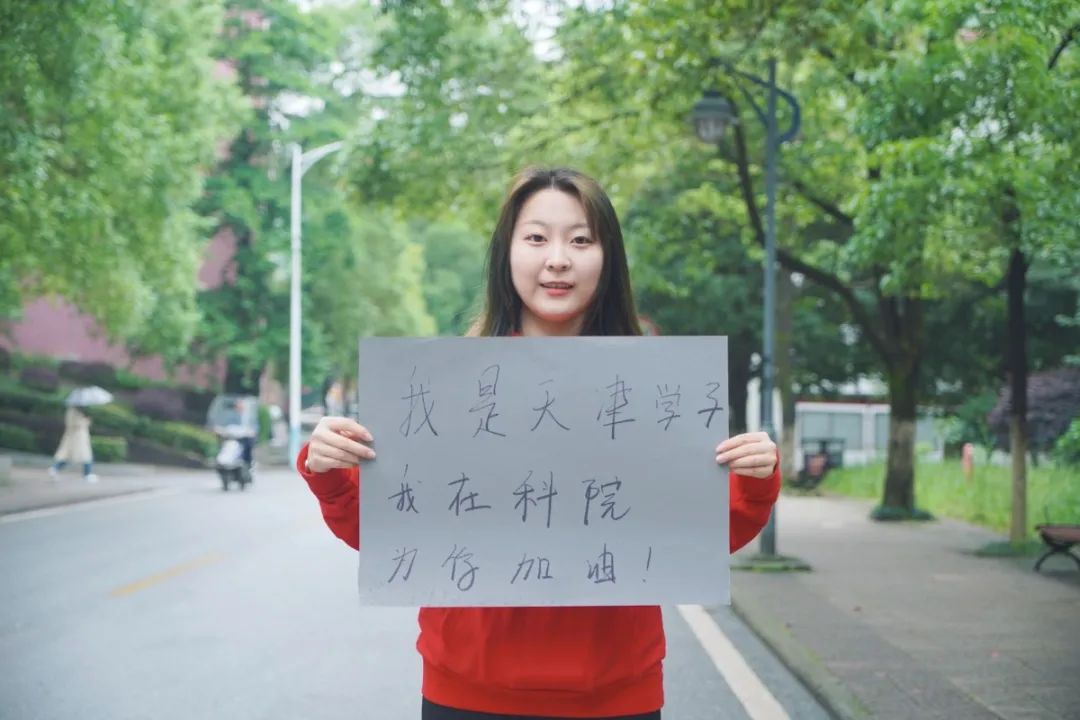 我是天津学子
我在科院
为你加油！